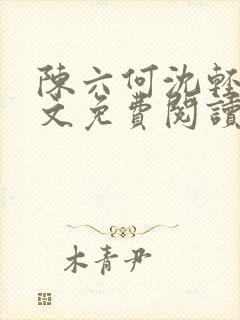 陳六何沈輕
文免費閱讀
木青尹